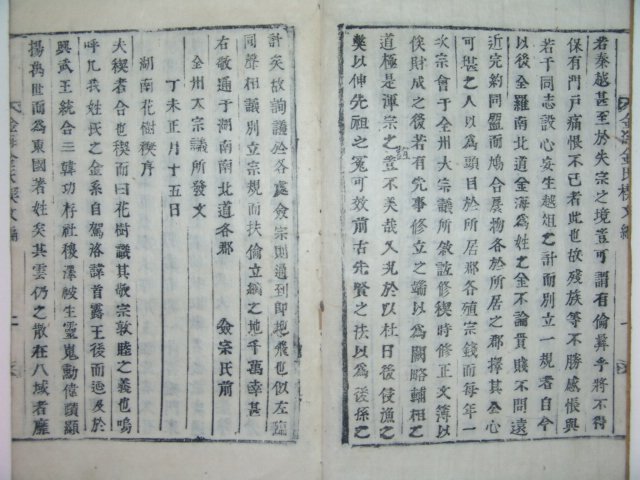 若秦越甚至於失宗之境豈可謂有倫彜乎將不得
保有門戶痛恨不已者此也故殘族等不勝感悵與
若干同志設心妄生越爼之計而別立一規者自今
以後全羅南北道金海爲姓之金不論貴賤不問遠
近完約同盟而鳩合屓物各於所居之郡擇其公心
可堪之人以爲頭目於所居郡各殖宗錢而每年一
次宗會于全州大宗議所敘誼修稧時修正文簿以
俟財成之後若有先事修立之端以爲闕略輔相之
道極是渾宗之誼豈不美哉又况於以杜日後侵漁之
獘以伸先祖之冤可效前古先賢之扶以爲後孫之
金海金氏稧文編
一
計矣故詢議於各處僉宗則通到即抱飛也似左臨
同聲相議別立宗規而扶倫立綱之地千萬幸甚
右敬通于湖南南北道各郡
僉宗氏前
全州大宗議所發文
丁未正月十五日
湖南花樹稧序
夫稧者合也稧而曰花樹議其敬宗敦睦之義也嗚
呼凡我姓氏之金系自駕洛譯首露王後而迨及於
興武王統合三韓功存社稷澤被生靈嵬勳偉蹟顯
揚萬世而爲東國著姓矣其雲仍之散在八域者靡
金海金氏稧文編
二